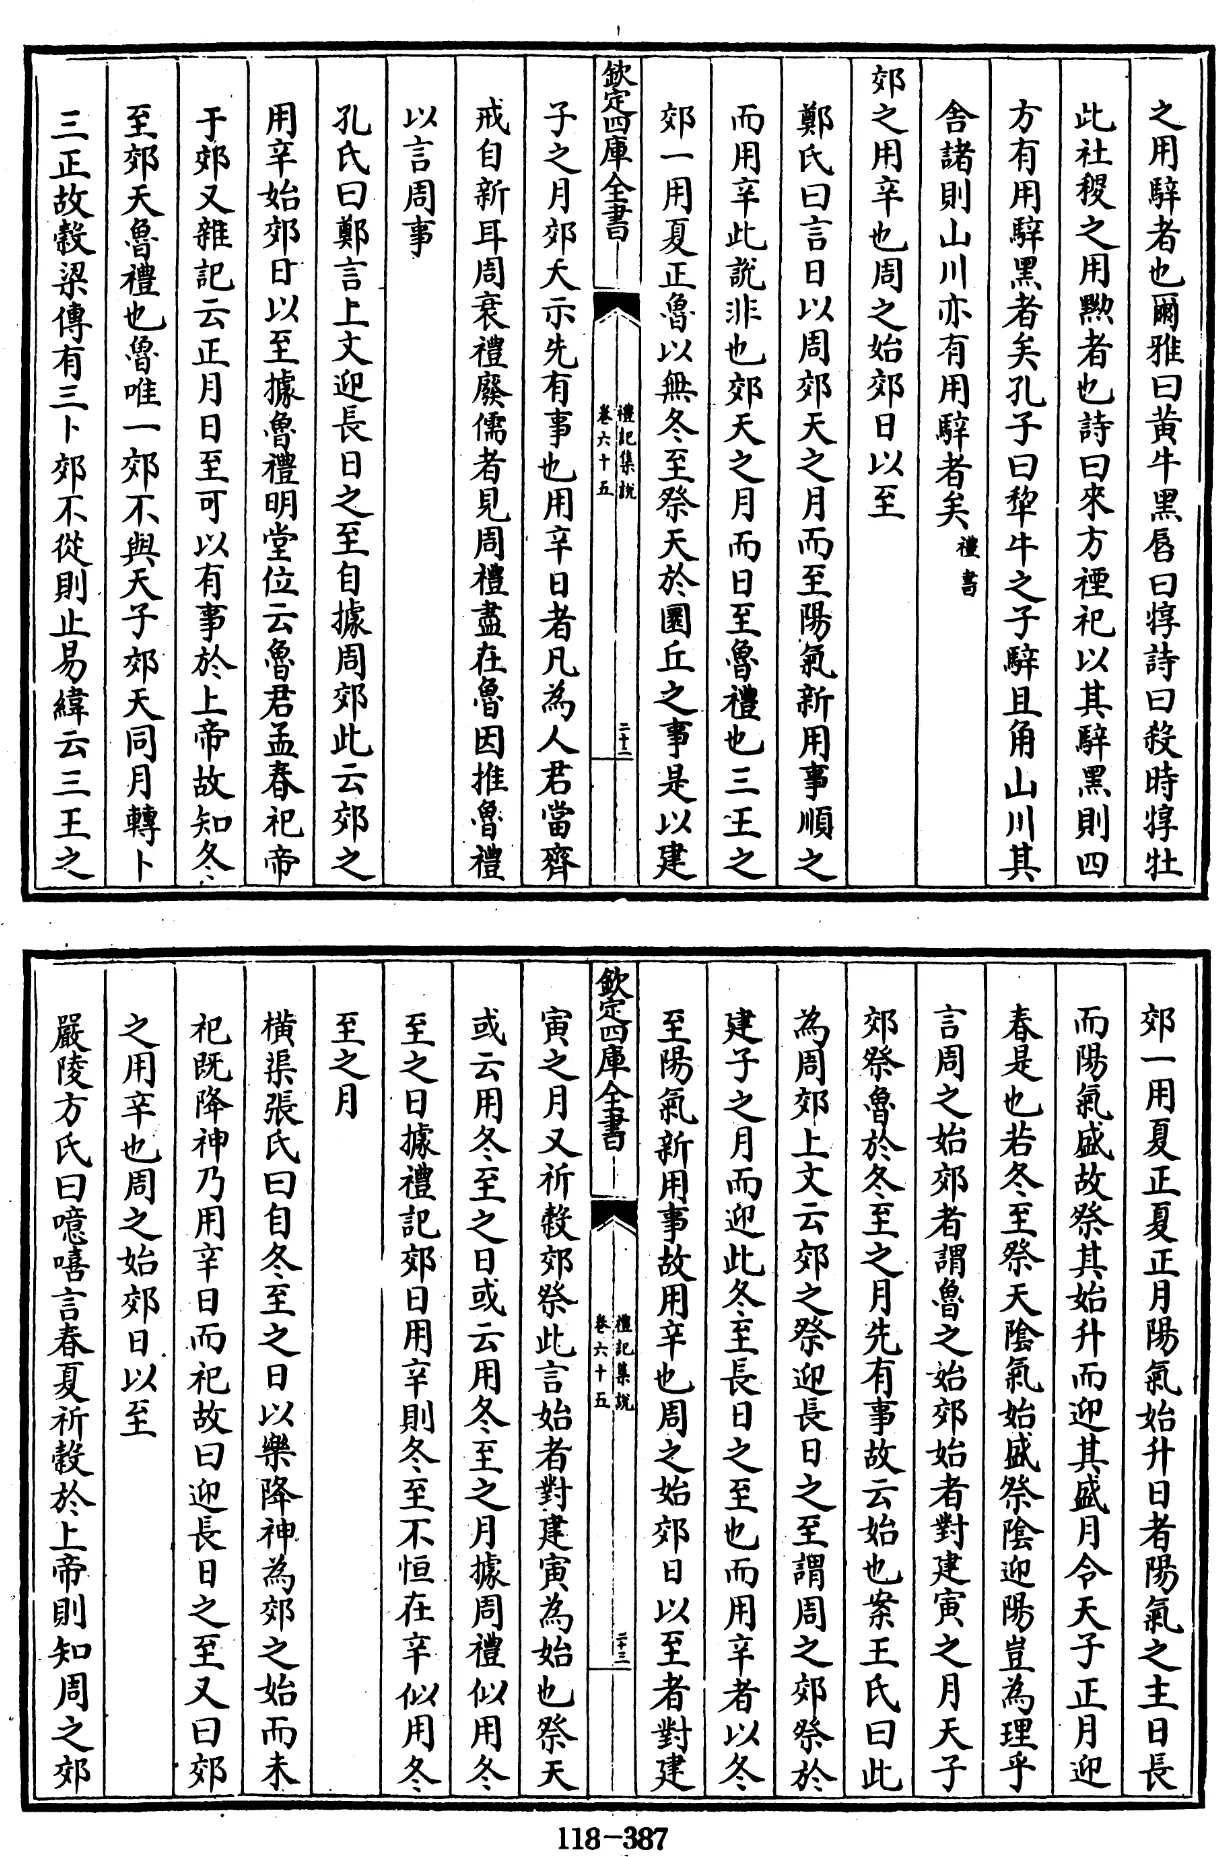 之用騂者也爾雅曰黃牛黑唇曰犉詩曰殺時犉牡
此社稷之用黝者也詩曰來方禋祀以其騂黑則四
方有用騂黑者矣孔子曰犂牛之子騂且角山川其
舍諸則山川亦有用騂者矣禮書
郊之用辛也周之始郊日以至
鄭氏曰言日以周郊天之月而至陽氣新用事順之
而用辛此說非也郊天之月而日至魯禮也三王之
郊一用夏正魯以無冬至祭天於圜丘之事是以建
欽定四庫全書
禮記集說
卷六十五
二十二
子之月郊天示先有事也用辛日者凡為人君當齊
戒自新耳周衰禮廢儒者見周禮盡在魯因推魯禮
以言周事
孔氏曰鄭言上文迎長日之至自據周郊此云郊之
用辛始郊日以至據魯禮明堂位云魯君孟春祀帝
于郊又雜記云正月日至可以有事於上帝故知冬
至郊天魯禮也魯唯一郊不與天子郊天同月轉卜
三正故穀梁傳有三卜郊不從則止易緯云三王之
郊一用夏正夏正月陽氣始升日者陽氣之主日長
而陽氣盛故祭其始升而迎其盛月令天子正月迎
春是也若冬至祭天陰氣始盛祭陰迎陽豈為理乎
言周之始郊者謂魯之始郊始者對建寅之月天子
郊祭魯於冬至之月先有事故云始也案王氏曰此
為周郊上文云郊之祭迎長日之至謂周之郊祭於
建子之月而迎此冬至長日之至也而用辛者以冬
至陽氣新用事故用辛也周之始郊日以至者對建
欽定四庫全書
禮記集說
卷六十五
二十三
寅之月又祈穀郊祭此言始者對建寅為始也祭天
或云用冬至之日或云用冬至之月據周禮似用冬
至之日據禮記郊日用辛則冬至不恒在辛似用冬
至之月
橫渠張氏曰自冬至之日以樂降神為郊之始而未
祀既降神乃用辛日而祀故曰迎長日之至又曰郊
之用辛也周之始郊日以至
嚴陵方氏曰噫嘻言春夏祈穀於上帝則知周之郊
118-387